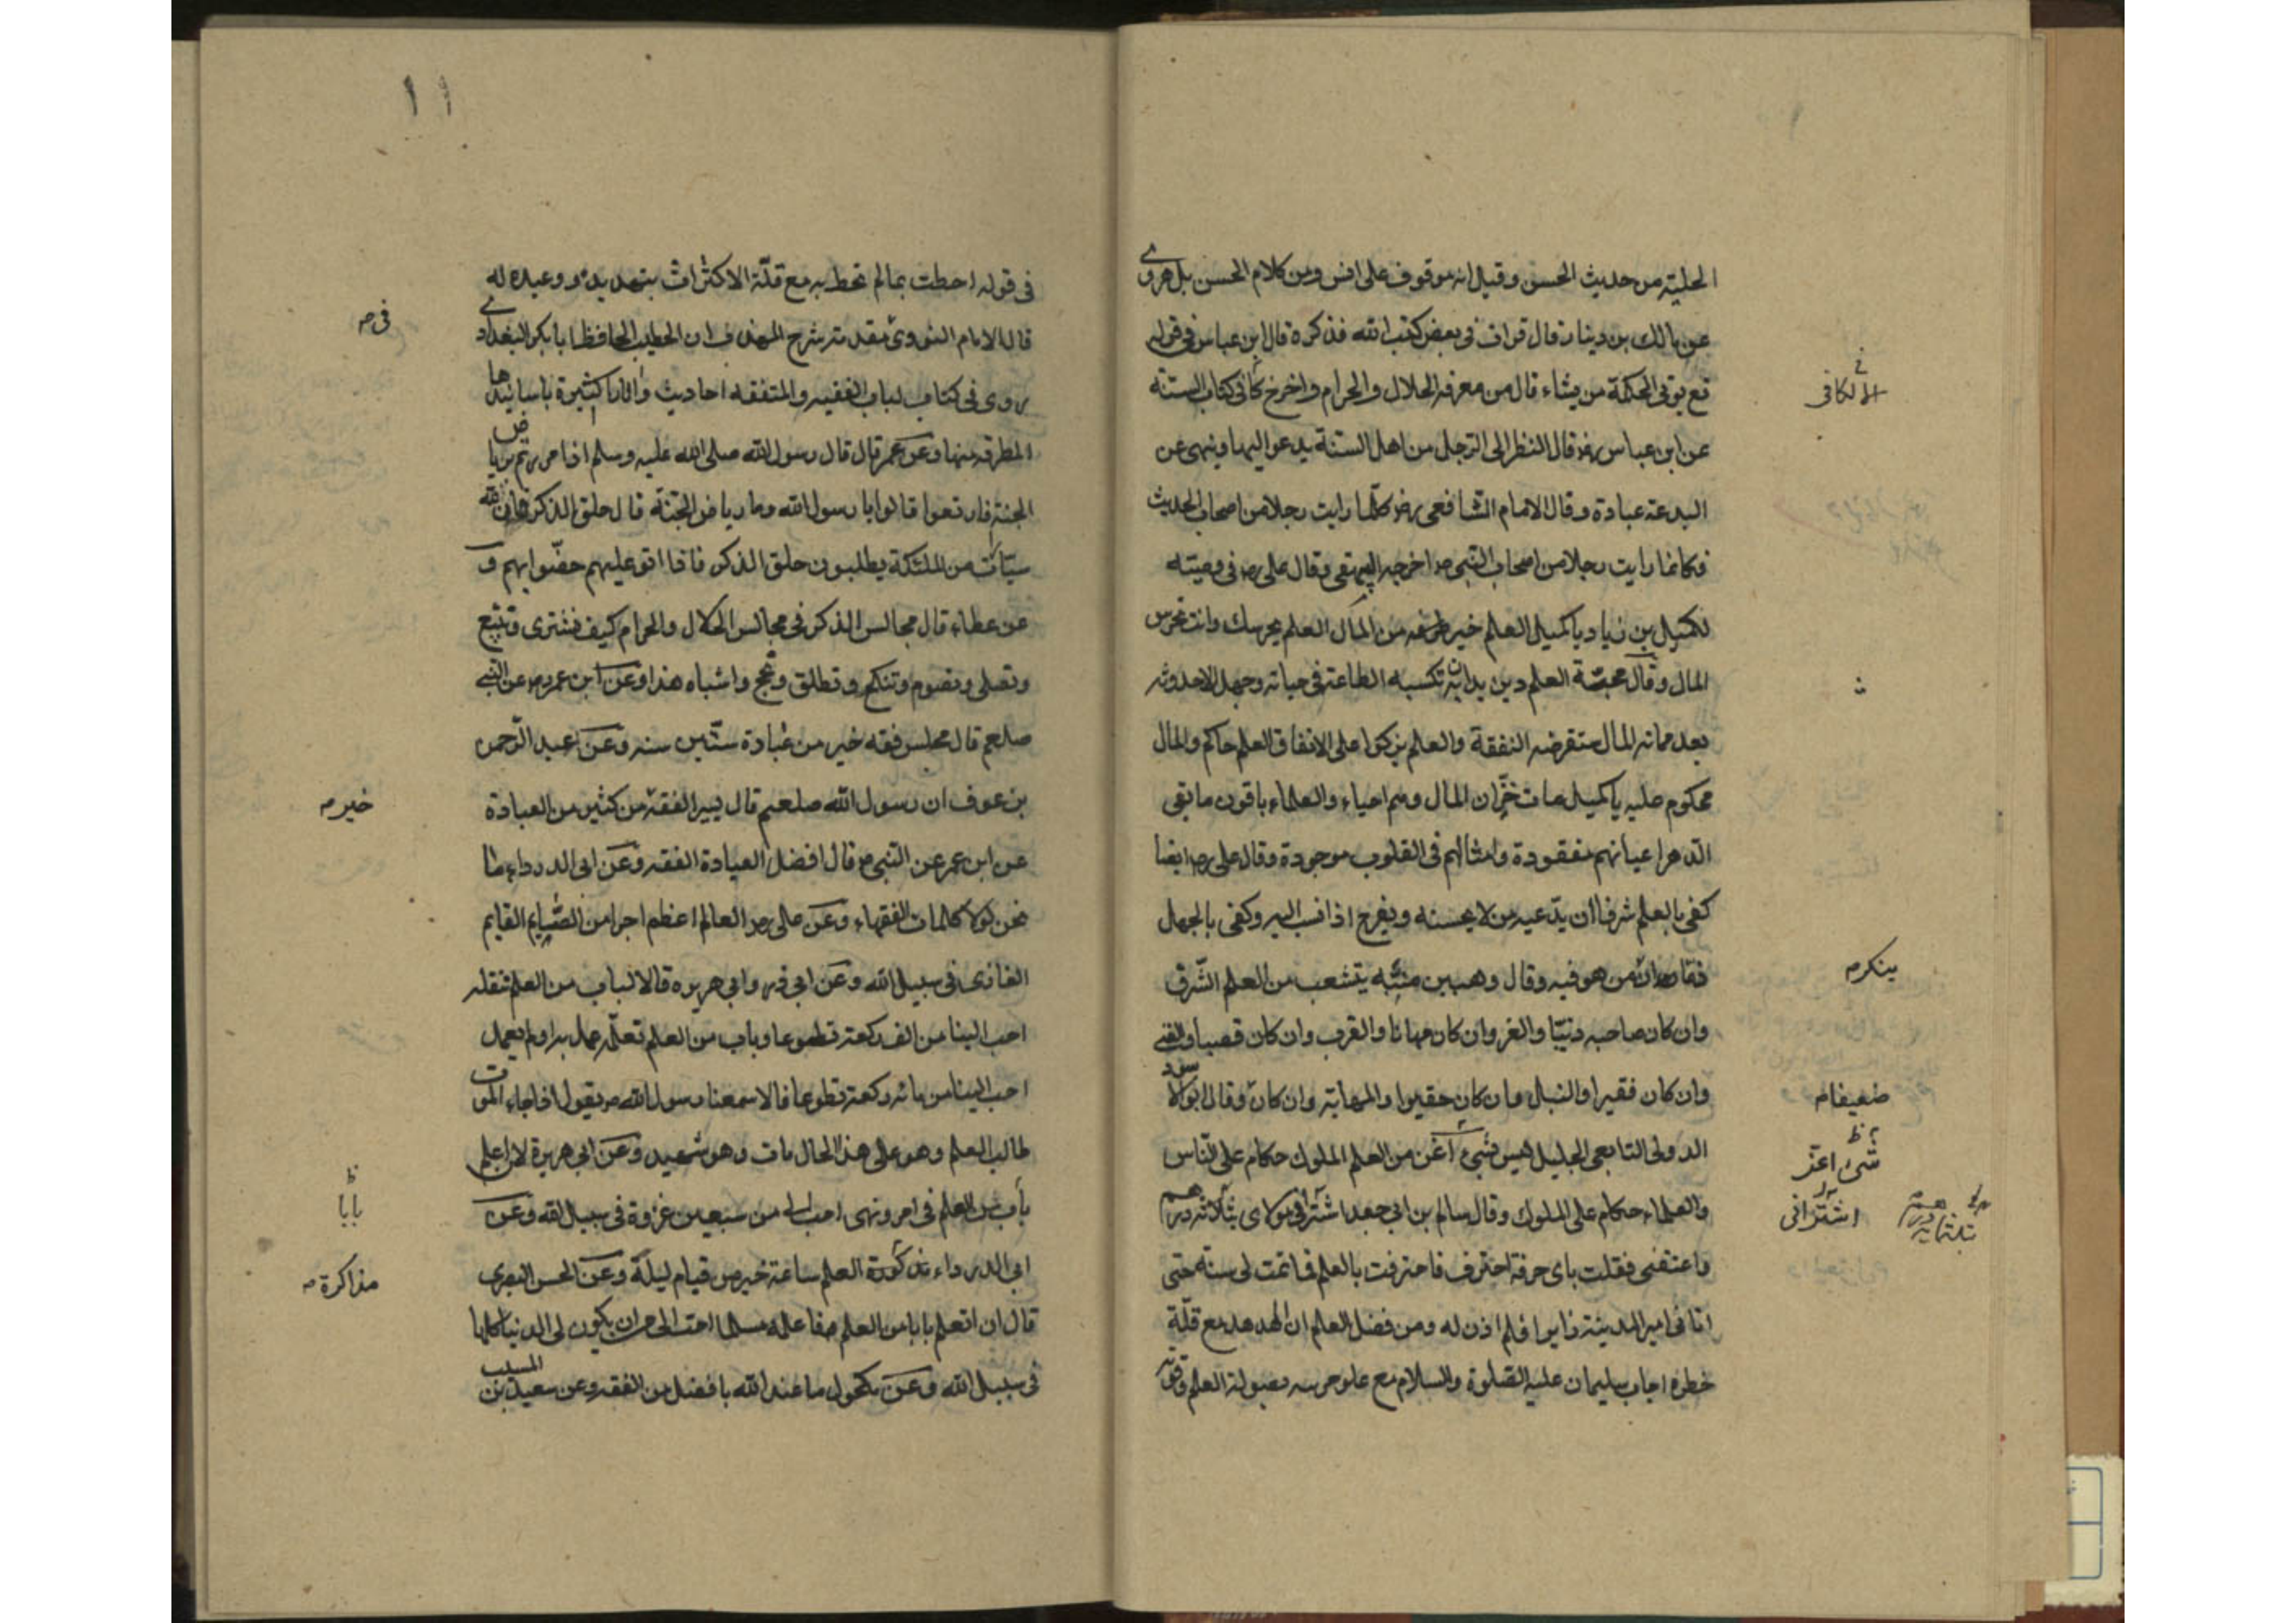 الحلية من حديث الحسن وقيل انه موقوف على انس ومن كلام الحسن بل هروى
عن مالك بن دينار قال قرات فى بعض كتب الله فذكره قال ابن عباس فى قوله
تع يوتى الحكمة من يشاء قال من معرفة الحلال والحرام واخرج كافى كتاب السنة
الالكافى
عن ابن عباس رضه قال النظر الى الرجل من اهل السنة يدعو اليها وينهى عن
البدعة عبادة وقال الامام الشافعى رضه كلما رايت رجلا من اصحاب الحديث
فكانما رايت رجلا من اصحاب النبى صه اخرجه البيهقى وقال على رضه فى وصيته
لكميل بن زياد يا كميل العلم خير من المال العلم يحرسك وانت تحرس
المال وقال محبة العلم دين يدان به تكسبه الطاعة فى حياته وجميل الاحدوثه
بعد مماته المال ستقرضه النفقة والعلم يزكوا على الانفاق العلم حاكم والمال
محكوم عليه يا كميل مات خزّان المال وهم احياء والعلماء باقون ما بقى
الدهر اعيانهم مفقودة وامثالهم فى القلوب موجودة وقال على رضه ايضا
كفى بالعلم شرفا ان يدّعيه من لا يحسنه ويفرح اذا نسب اليه وكفى بالجهل
ذما من هو فيه وقال وهب بن منبّه يتشعب من العلم الشرف
ينكرمه
وان كان صاحبه دنيّا والعز وان كان مهانا والقرب وان كان قصيا والغنى
وان كان فقيرا والنبل وان كان حقيرا والمهابة وان كان وقال ابو الاسود
ضعيفامه
الدولى التابعى الجليل ليس شىء اعز من العلم الملوك حكام على النّاس
شىء اعتر
والعلماء حكام على الملوك وقال سالم بن ابى جعد اشترانى مولاى بثلاثة درهم
اشترانى
واعتقنى فقلت باى حرفة احترف فاحترفت بالعلم فما تمت لى سنة حتى
اتانى امير المدينة زايرا فلم اذن له ومن فضل العلم ان الهدهد مع قلّة
خطره اجاب سليمان عليه الصلوة والسلام مع علو مرتبه بصولة العلم وقوته
١١
فى قوله احطت بمالم تحط به مع قلّة الاكتراث بتهديده ووعيده له
قال الامام النووى مقدمة شرح المهذب ان الخطيب الحافظ ابا بكر البغدادى
فىمه
روى فى كتاب لباب الفقيه والمتفقه احاديث واثارا كثيرة باسانيدها
المطرقه منها وعن عمر قال قال رسول الله صلى الله عليه وسلم اذا مررتم برياض
الجنة فارتعوا قالوا يا رسول الله وما رياض الجنة قال حلق الذكر فان لله
سيّارات من الملئكة يطلبون حلق الذكر فاذا اتو عليهم حفّوا بهم و
عن عطاء قال مجالس الذكر فى مجالس الحلال والحرام كيف تشترى وتبيع
وتصلى وتصوم وتنكح وتطلق وتحج واشباه هذا وعن ابن عمر رضه عن النبى
صلعم قال مجلس فقه خير من عبادة ستّين سنه وعن عبد الرّحمن
بن عوف ان رسول الله صلعم قال يسير الفقه من كثير من العبادة
خيرمه
عن ابن عمر عن النبى صه قال افضل العبادة الفقه وعن ابى الدرداء ما
نحن لولا كلمات الفقهاء وعن على رضه العالم اعظم اجرا من الصّايم القايم
الغازى فى سبيل الله وعن ابى ذر وابى هريره قالا لباب من العلم نتعلمه
احب الينا من الف ركعة تطوعا وباب من العلم تعلمه عمل به او لم يعمل
احب الينا من مائة ركعة تطوعا قالا سمعنا رسول الله صه يقول اذا جاء الموت
طالب العلم وهو على هذا الحال مات وهو شهيد وعن ابى هريرة لان اعلم
باب من العلم فى امر ونهى احب الى من سبعين غزوة فى سبيل الله وعن
بابا
ابى الدرداء مذكورة العلم ساعة خير من قيام ليلة وعن الحسن البصرى
مذاكرةمه
قال ان اتعلم بابا من العلم فاعلمه مسلما احب الى من ان يكون لى الدنيا كلها
فى سبيل الله وعن مكحول ما عند الله بافضل من الفقه وعن سعيد بن المسيب